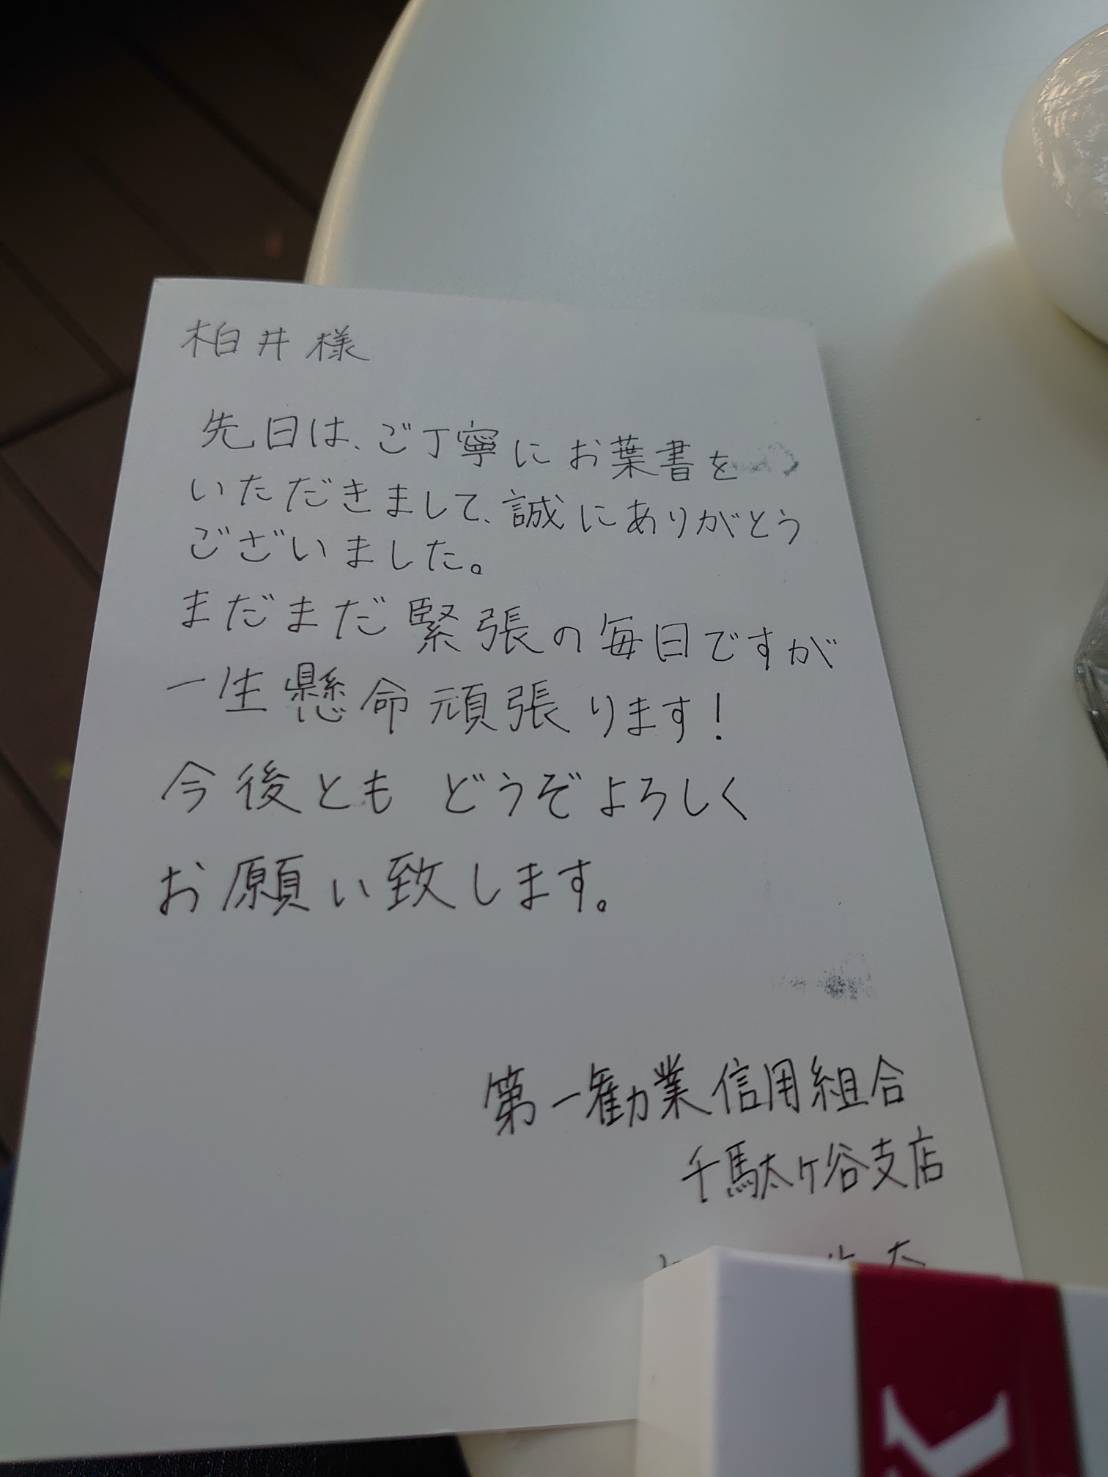 柏井様
先日は、ご丁寧にお葉書を
いただきまして、誠にありがとう
ございました。
まだまだ緊張の毎日ですが
一生懸命頑張ります!
今後とも どうぞよろしく
お願い致します。
第一勧業信用組合
千駄ヶ谷支店